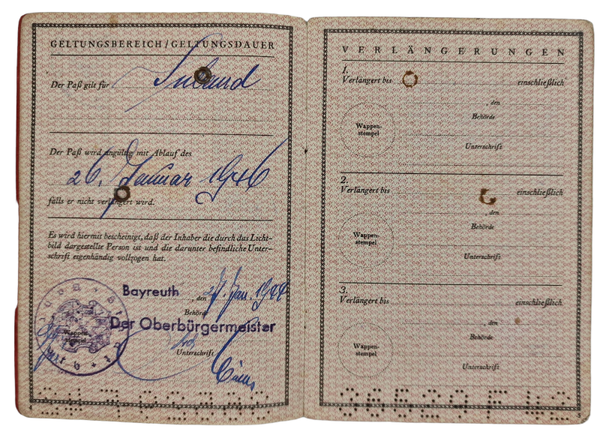 GELTUNGSBEREICH/GELTUNGSDAUER
Der Paß gilt für Inland
Der Paß wird ungültig mit Ablauf des
26. Januar 1946
falls er nicht verlängert wird.
Es wird hiermit bescheinigt, daß der Inhaber die durch das Licht-
bild dargestellte Person ist und die darunter befindliche Unter-
schrift eigenhändig vollzogen hat.
Bayreuth, den Jan. 1944
Behörde
Der Oberbürgermeister
Unterschrift
VERLÄNGERUNGEN
1.
Verlängert bis einschließlich
, den
Behörde
Wappen-
stempel
Unterschrift
2.
Verlängert bis einschließlich
, den
Behörde
Wappen-
stempel
Unterschrift
3.
Verlängert bis einschließlich
, den
Behörde
Wappen-
stempel
Unterschrift